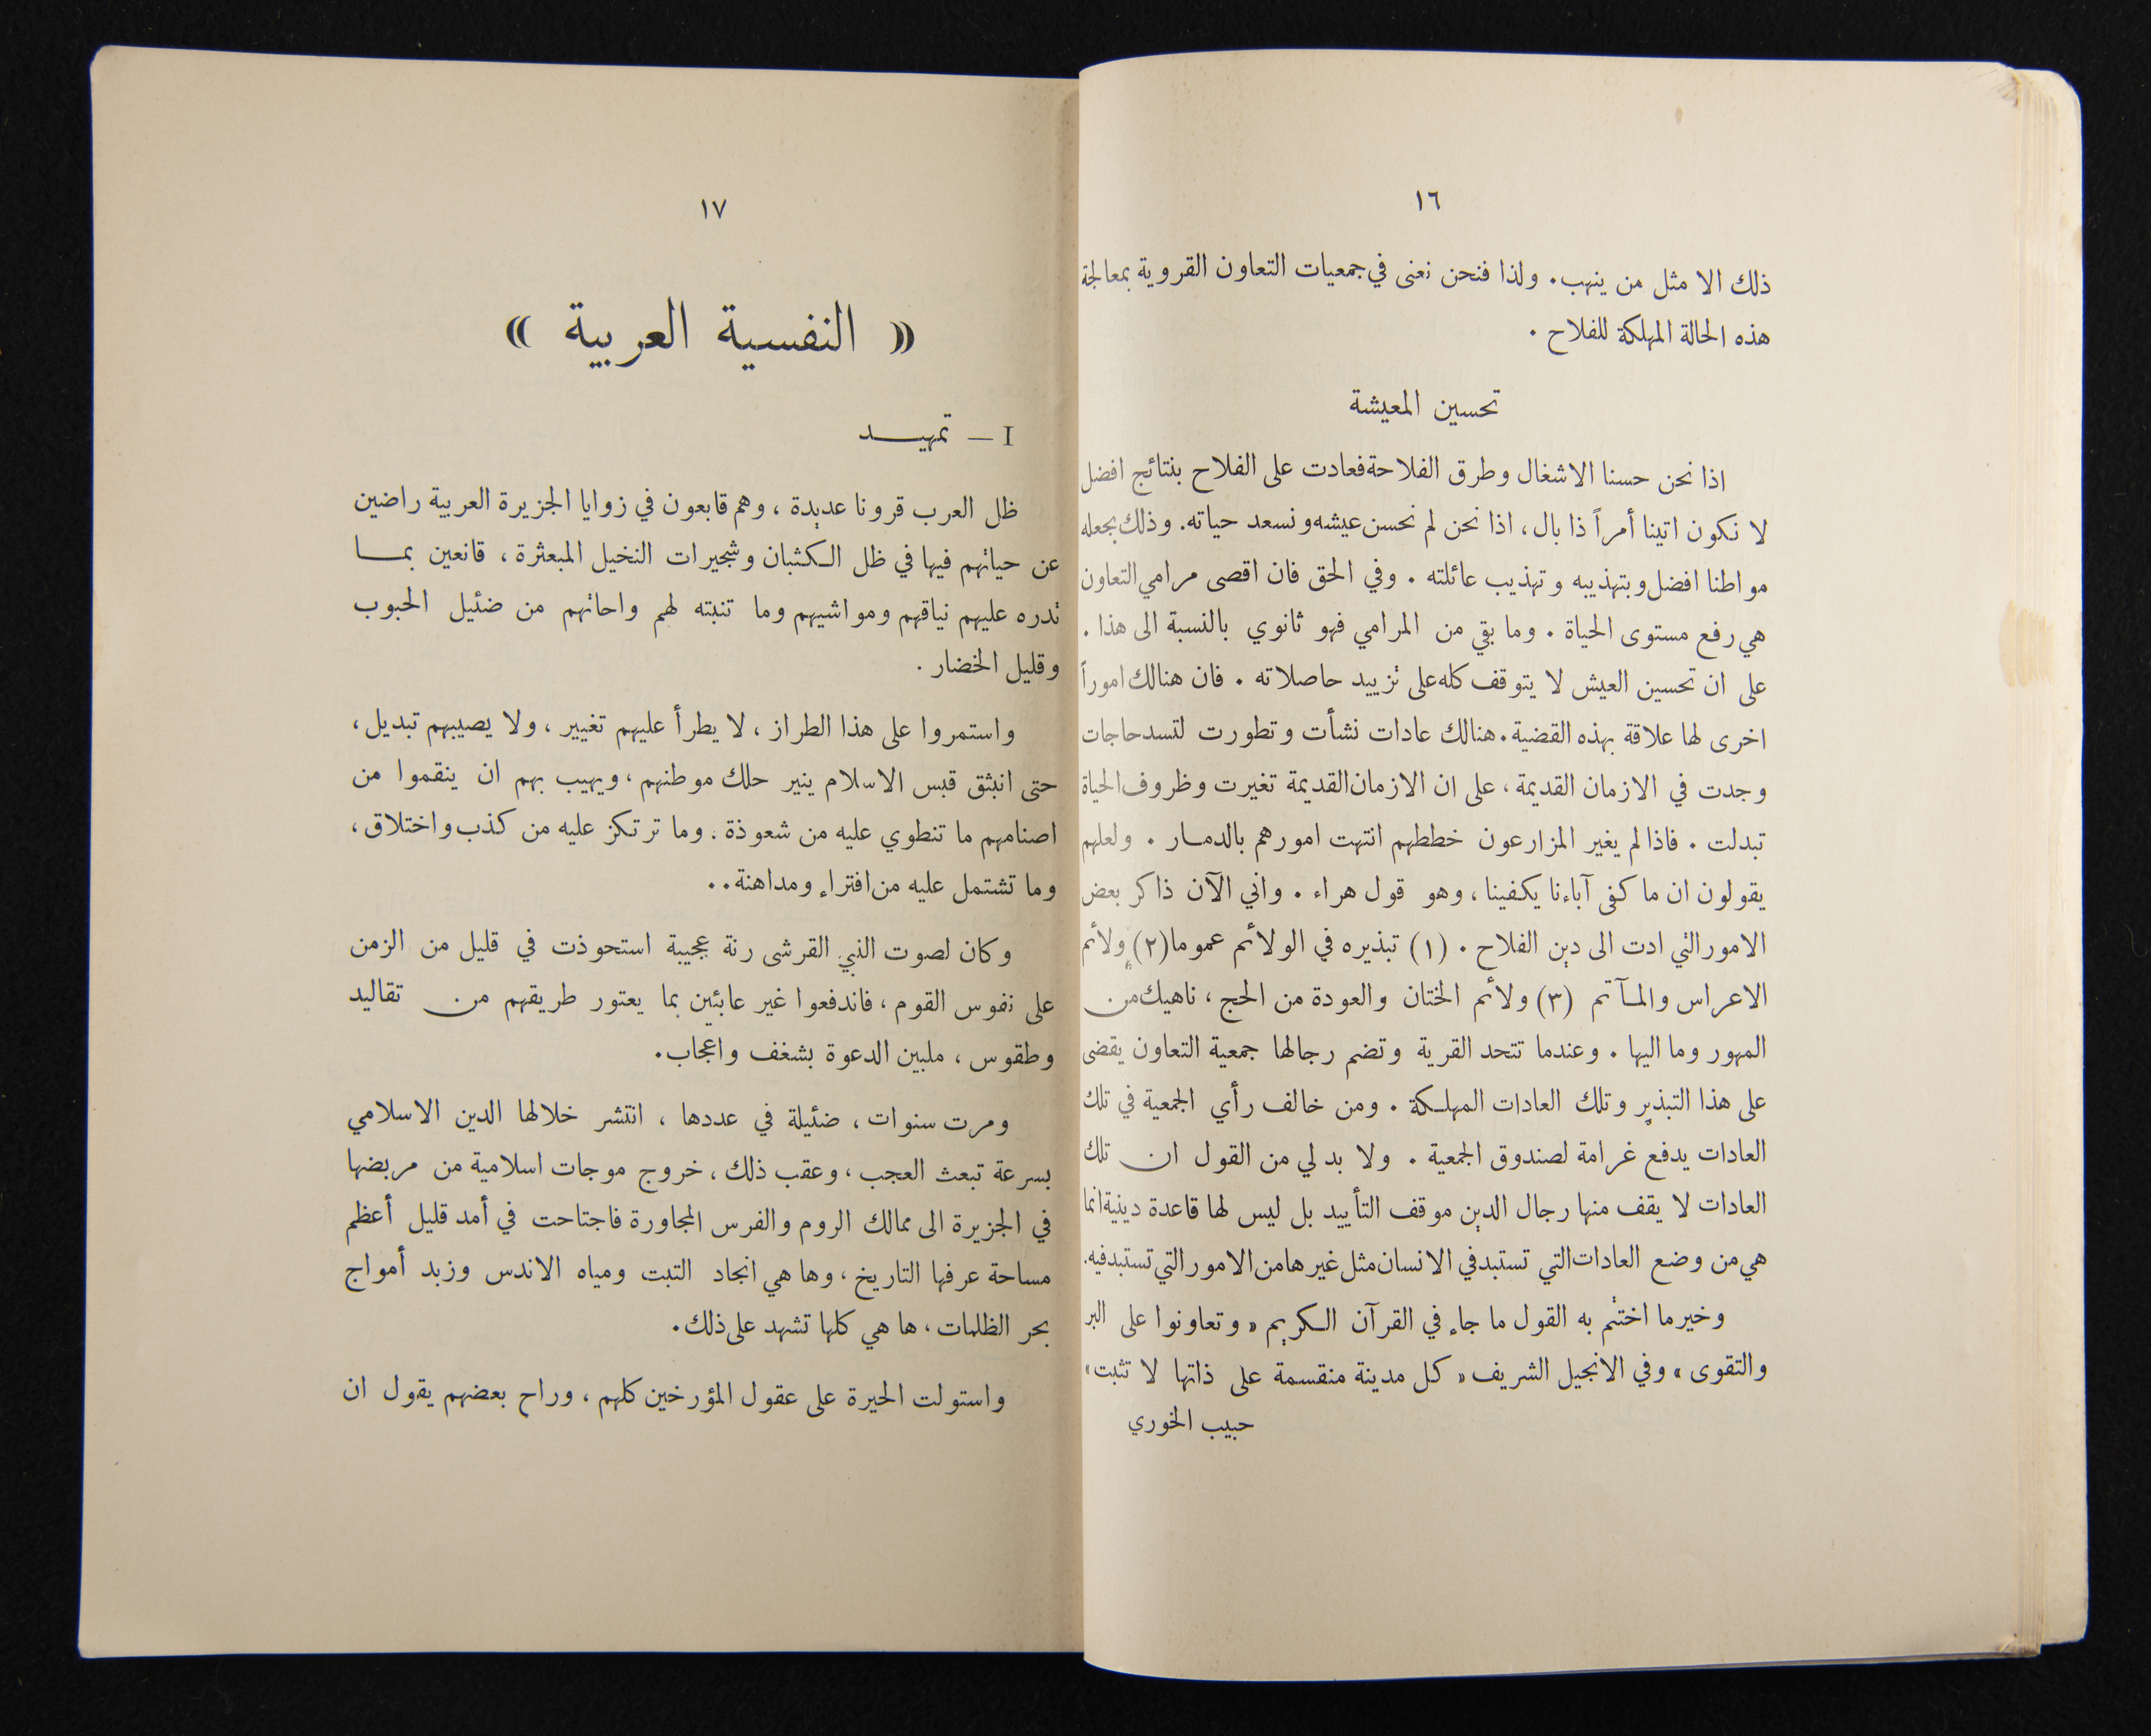 ١٦
ذلك الا مثل من ينهب . ولذا فنحن نعنى في جمعيات التعاون القروية بمعالجة
هذه الحالة المهلكة للفلاح .
تحسين المعيشة
اذا نحن حسنا الاشغال وطرق الفلاحة فعادت على الفلاح بنتائج افضل
لا نكون اتينا أمراً ذا بال ، اذا نحن لم نحسن عيشه ونسعد حياته . وذلك بجعله
مواطنا افضل وبتهذيبه وتهذيب عائلته . وفي الحق فان اقصى مرامي التعاون
هي رفع مستوى الحياة . وما بقي من المرامي فهو ثانوي بالنسبة الى هذا .
على ان تحسين العيش لا يتوقف كله على تزييد حاصلاته . فان هنالك اموراً
اخرى لها علاقة بهذه القضية . هنالك عادات نشأت وتطورت لتسد حاجات
وجدت في الازمان القديمة ، على ان الازمان القديمة تغيرت وظروف الحياة
تبدلت . فاذا لم يغير المزارعون خططهم انتهت امورهم بالدمار . ولعلهم
يقولون ان ما كفى آباءنا يكفينا ، وهو قول هراء . واني الآن ذاكر بعض
الامور التي ادت الى دين الفلاح . (١) تبذيره في الولائم عموما (٢) ولائم
الاعراس والمآتم (٣) ولائم الختان والعودة من الحج ، ناهيك من
المهور وما اليها . وعندما تتحد القرية وتضم رجالها جمعية التعاون يقضى
على هذا التبذير وتلك العادات المهلكة . ومن خالف رأي الجمعية في تلك
العادات يدفع غرامة لصندوق الجمعية . ولا بد لي من القول ان تلك
العادات لا يقف منها رجال الدين موقف التأييد بل ليس لها قاعدة دينية انما
هي من وضع العادات التي تستبد في الانسان مثل غيرها من الامور التي تستبد فيه .
وخير ما اختتم به القول ما جاء في القرآن الكريم « وتعاونوا على البر
والتقوى » وفي الانجيل الشريف « كل مدينة منقسمة على ذاتها لا تثبت »
حبيب الخوري
١٧
« النفسية العربية »
I — تمهيد
ظل العرب قرونا عديدة ، وهم قابعون في زوايا الجزيرة العربية راضين
عن حياتهم فيها في ظل الكثبان وشجيرات النخيل المبعثرة ، قانعين بما
تدره عليهم نياقهم ومواشيهم وما تنبته لهم واحاتهم من ضئيل الحبوب
وقليل الخضار .
واستمروا على هذا الطراز ، لا يطرأ عليهم تغيير ، ولا يصيبهم تبديل ،
حتى انبثق قبس الاسلام ينير حلك موطنهم ، ويهيب بهم ان ينقموا من
اصنامهم ما تنطوي عليه من شعوذة . وما ترتكز عليه من كذب واختلاق ،
وما تشتمل عليه من افتراء ومداهنة . .
وكان لصوت النبي القرشى رنة عجيبة استحوذت في قليل من الزمن
على نفوس القوم ، فاندفعوا غير عابئين بما يعتور طريقهم من تقاليد
وطقوس ، ملبين الدعوة بشغف واعجاب .
ومرت سنوات ، ضئيلة في عددها ، انتشر خلالها الدين الاسلامي
بسرعة تبعث العجب ، وعقب ذلك ، خروج موجات اسلامية من مربضها
في الجزيرة الى ممالك الروم والفرس المجاورة فاجتاحت في أمد قليل أعظم
مساحة عرفها التاريخ ، وها هي انجاد التبت ومياه الاندس وزبد أمواج
بحر الظلمات ، ها هي كلها تشهد على ذلك .
واستولت الحيرة على عقول المؤرخين كلهم ، وراح بعضهم يقول ان